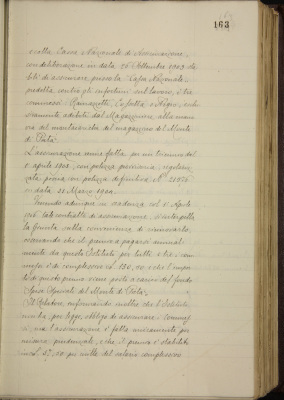 163
colla Cassa Nazionale di Assicurazione,
con deliberazione in data 26 Settembre 1902 de-
liberò di assicurare presso la Cassa Nazionale
predetta contro gli infortuni sul lavoro, i tre
commessi Ramazzotti, e
adibiti dal Magazziniere, alla mano-
vra del montacarichi del magazzino del Monte
di Pietà.
L'assicurazione venne fatta per un triennio dal
1° aprile 1903, con polizza provvisoria, regolariz-
zata poscia con polizza definitiva N°
in data 31 Marzo 1904.
Venendo adunque in scadenza col 1° Aprile
1906 tale contratto di assicurazione, s'interpella
la Giunta sulla convenienza di rinnovarlo,
osservando che il premio a pagarsi annual-
mente da questo Istituto per tutti i tre com-
messi è di complessive L. e che l'impor-
to di questo premio viene posto a carico del fondo
Spese Generali del Monte di Pietà.
Il Relatore, informando inoltre che l'Istituto
non ha, per legge, obbligo di assicurare i commes-
si, ma l'assicurazione è fatta unicamente per
misura prudenziale, e che il premio è stabilito
in L. per mille del salario complessivo